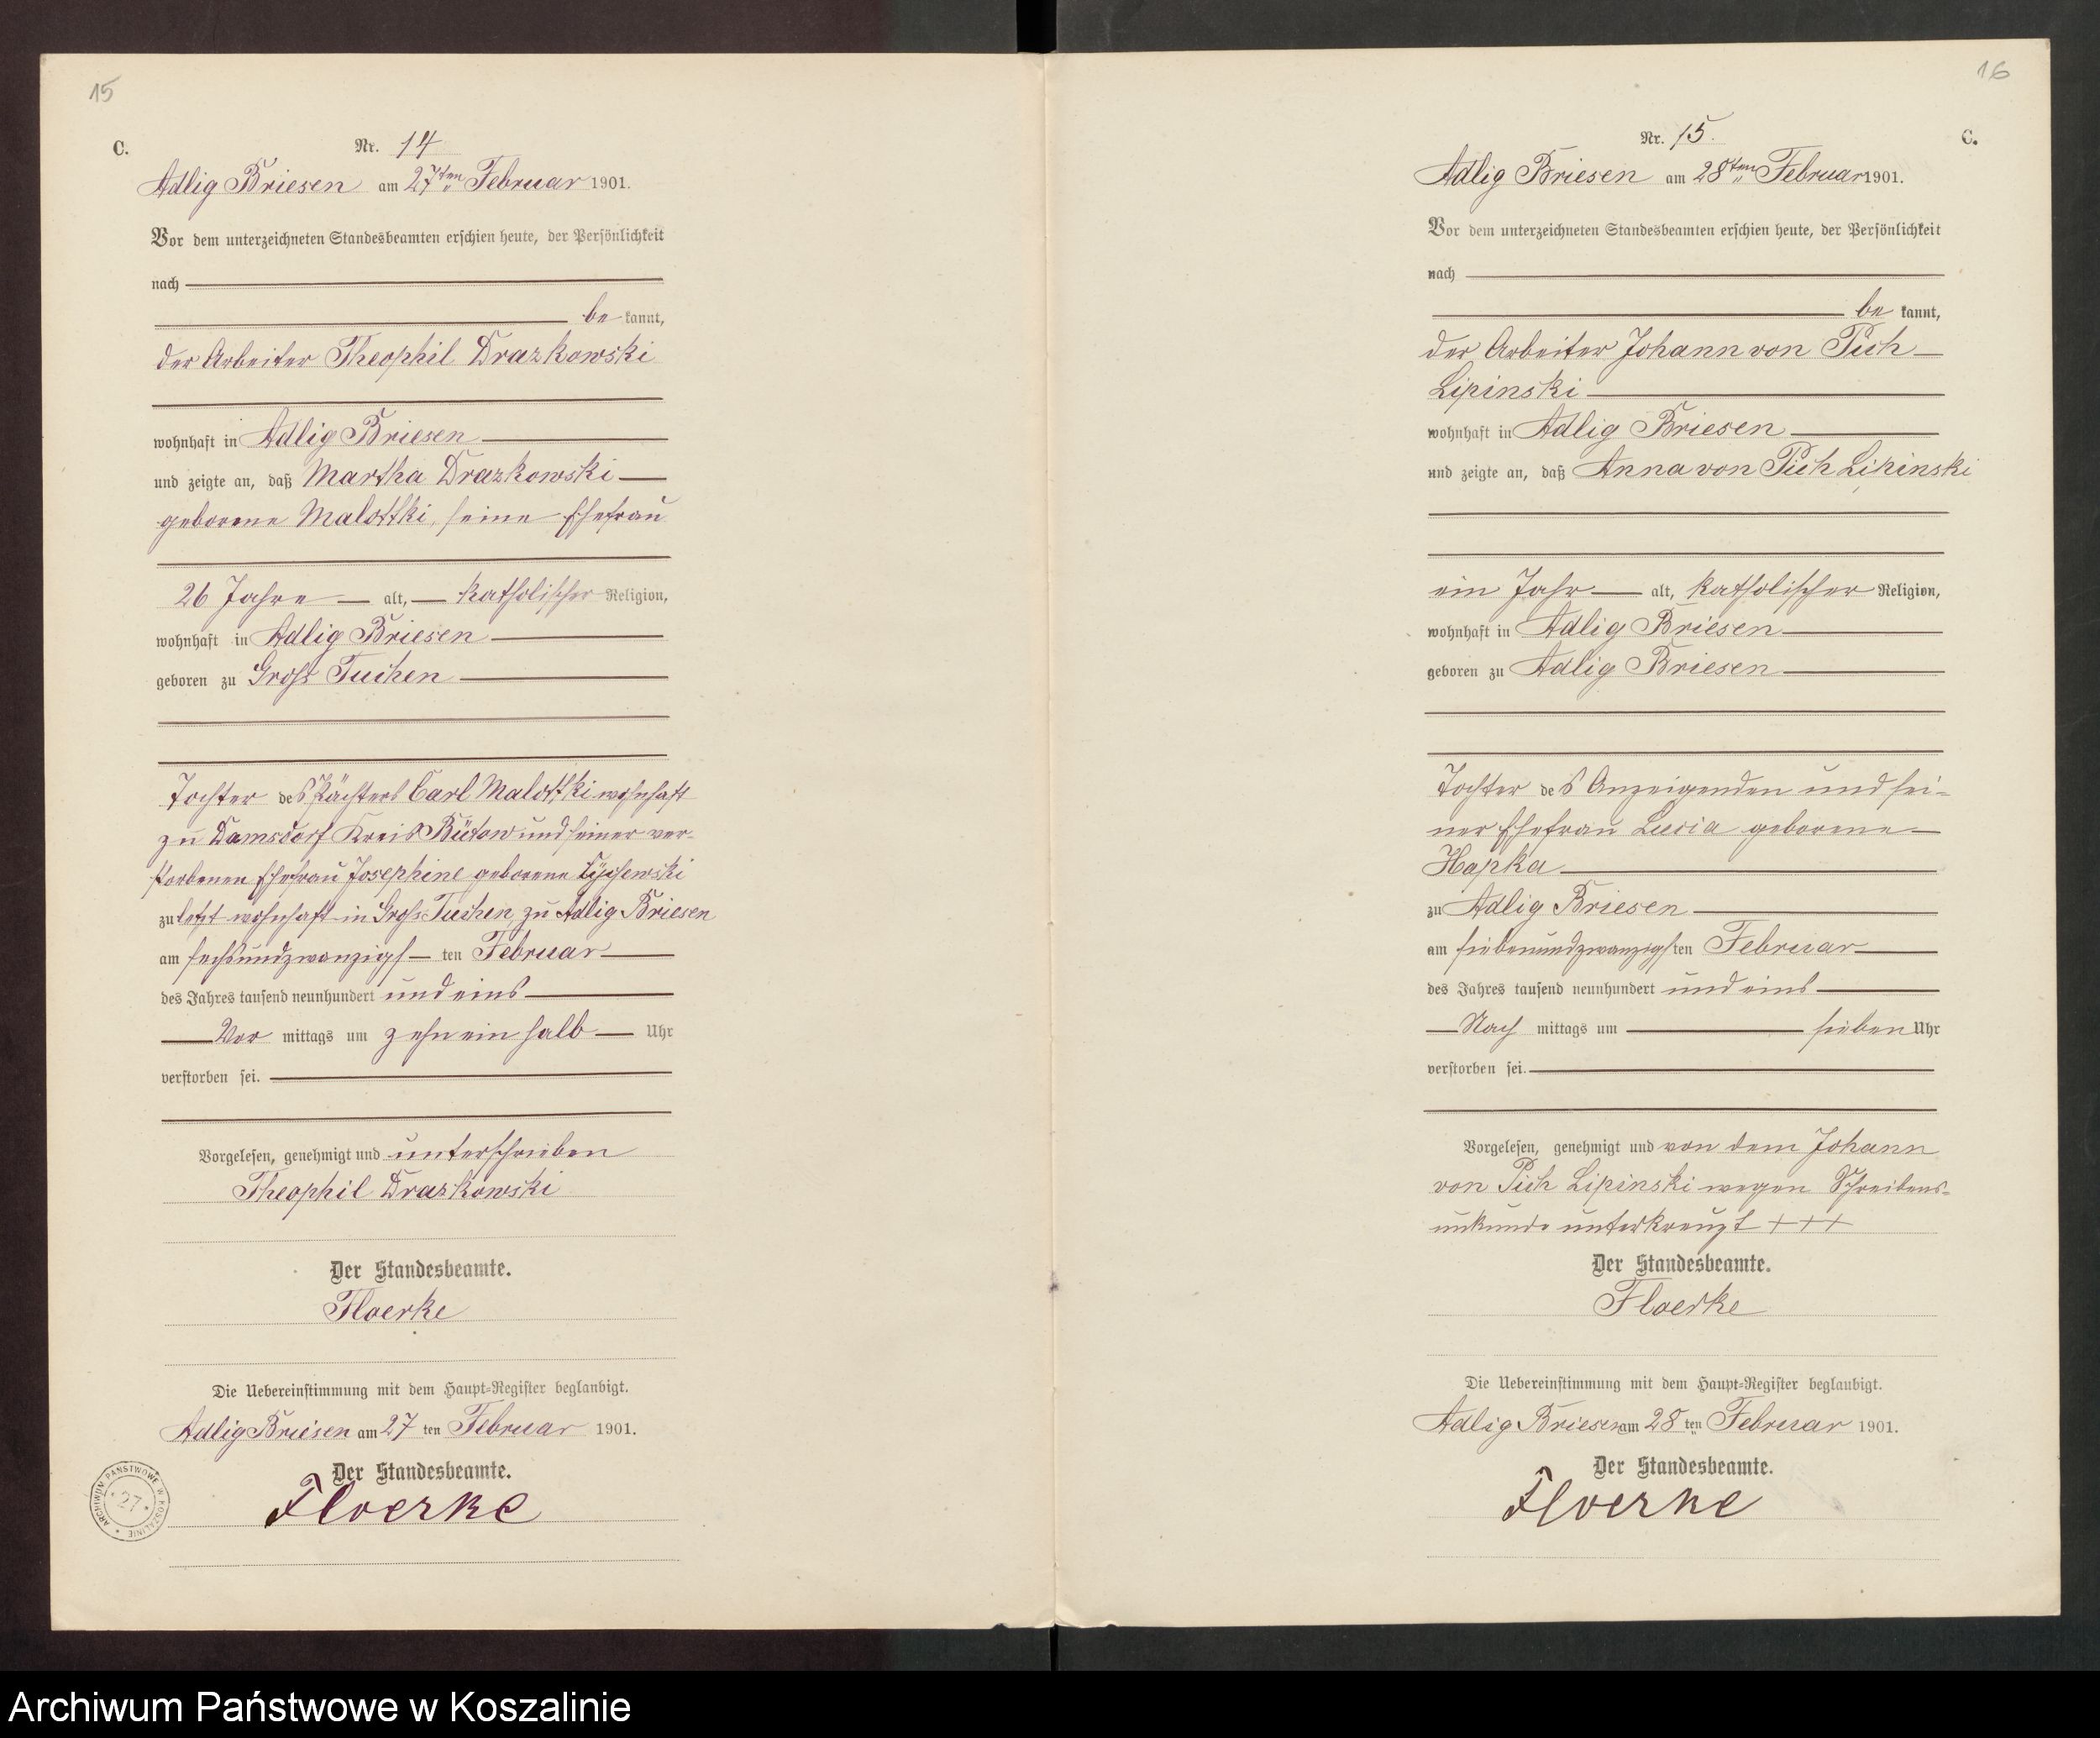 15
C.
Nr. 14
Adlig Briesen am 27ten Februar 1901.
Vor dem unterzeichneten Standesbeamten erschien heute, der Persönlichkeit
nach
be kannt,
der Arbeiter Theophil Drazkowski
wohnhaft in Adlig Briesen
und zeigte an, daß Martha Drazkowski
geborene Malottki, seine Ehefrau
26 Jahre alt, katholischer Religion,
wohnhaft in Adlig Briesen
geboren zu Gross Tuchen
Tochter des Pächters Carl Malottki wohnhaft
zu Damsdorf Kreis Bütow und seiner ver-
storbenen Ehefrau Josephine geborene
zuletzt wohnhaft in Gross Tuchen, zu Adlig Briesen
am sechsundzwanzigs ten Februar
des Jahres tausend neunhundert und eins
Vor mittags um zehn ein halb Uhr
verstorben sei.
Vorgelesen, genehmigt und unterschrieben
Theophil Drazkowski
Der Standesbeamte.
Floerke
Die Uebereinstimmung mit dem Haupt-Register beglaubigt.
Adlig Briesen am 27 ten Februar 1901.
Der Standesbeamte.
Floerke
ARCHIWUM PAŃSTWOWE W KOSZALINIE
27
16
Nr. 15.
C.
Adlig Briesen am 28ten Februar 1901.
Vor dem unterzeichneten Standesbeamten erschien heute, der Persönlichkeit
nach
be kannt,
der Arbeiter Johann von Pich
Lipinski
wohnhaft in Adlig Briesen
und zeigte an, daß Anna von Pich Lipinski
ein Jahr alt, katholischer Religion,
wohnhaft in Adlig Briesen
geboren zu Adlig Briesen
Tochter des Anzeigenden und sei-
ner Ehefrau Lucia geborene
Hapka
zu Adlig Briesen
am siebenundzwanzigsten Februar
des Jahres tausend neunhundert und eins
Nach mittags um sieben Uhr
verstorben sei.
Vorgelesen, genehmigt und von dem Johann
von Pich Lipinski wegen Schreibens-
unkunde unterkreuzt +++
Der Standesbeamte.
Floerke
Die Uebereinstimmung mit dem Haupt-Register beglaubigt.
Adlig Briesen am 28 ten Februar 1901.
Der Standesbeamte.
Floerke
Archiwum Państwowe w Koszalinie